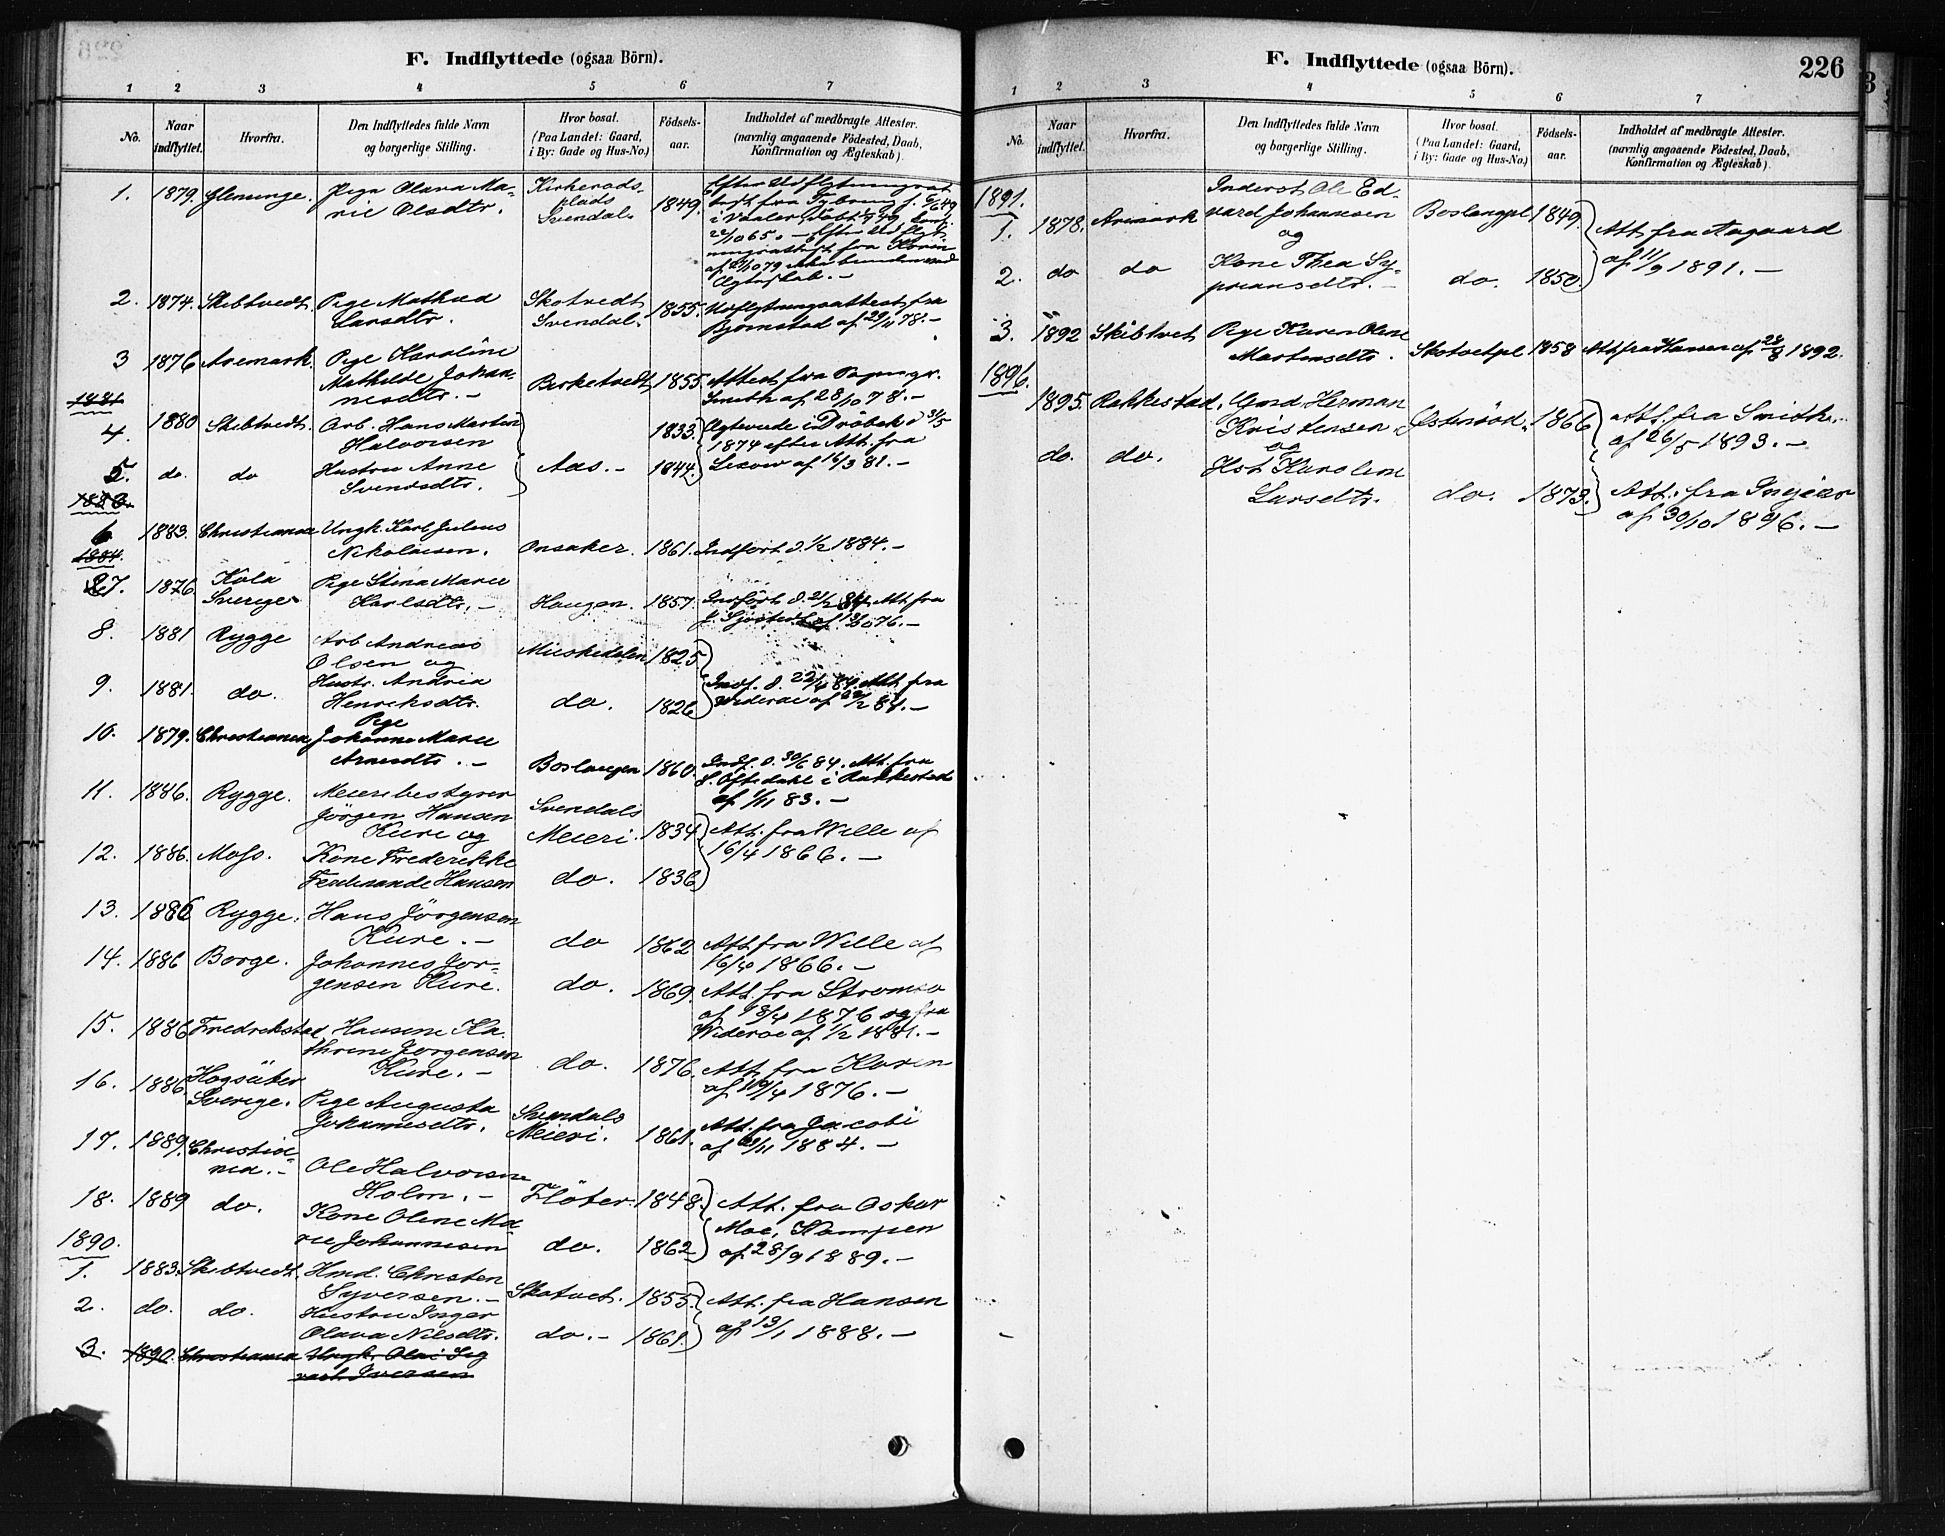 F. Indflyttede (ogsaa Börn).
1 2 3 4 5 6 7
No. Naar indflyttet. Hvorfra. Den Indflyttedes fulde Navn og borgerlige Stilling. Hvor bosat. (Paa Landet: Gaard, i By: Gade og Hus-No.) Födsels-aar. Indholdet af medbragte Attester. (navnlig angaaende Födested, Daab, Konfirmation og Ægteskab).
1. 1879. Glemminge. Pige Olava Ma-
rie Olsdtr. Kirkerods-
plads
Svendal. 1849.
2. 1874. Skibtvedt. Pige Mathea
Larsdtr. Skotvedt
Svendal. 1855. Udflytningsattest fra
Bjørnstad af 29/11 78. –
3 1876 Aremark. Pige Karoline
Mathilde Johan-
nesdtr. – Birketvedt 1855. Attest fra Sognepr.
Smith af 28/10 78. –
1881
4. 1880 Skibtvedt. Arb. Hans Martin
Halvorsen 1833. Ægteviede i Dröbak d 31/5
1874 efter Att. fra
5. do. do Hustru Anne
Svendsdtr. Aas. – 1844. Lexow af 16/3 81. –
1883.
6 1883. Christiania Ungk. Karl Julius
Nikolaisen. Onsaker. 1861. Indfört d. 1/2 1884. –
1884.
7. 1876 Köla
Sverige Pige Stina Marie
Karlsdtr. – Haugen. 1857. Indfört d. 21/2 84, Att fra
8. 1881 Rygge Arb Andreas
Olsen og 1825.
9. 1881. do. Hustr. Andria
Henriksdtr. do. 1826 Indf. d. 22/4 84, Att fra
Wideröe af 22/2 84. –
10. 1879. Christiania Pige
Johanne Marie
Arnesdtr. – Boslangen 1860. Indf. d. 30/6 84. Att. fra
S. Oftedahl i Rakkestad
af 1/11 83. –
11. 1886. Rygge. Meieribestyrer
Jörgen Hansen
Kure og Svendals
Meieri. 1834 Att. fra Wille af
16/4 1866. –
12. 1886. Moss. Kone Frederikke
Ferdinande Hansen do. 1836
13. 1886 Rygge. Hans Jörgensen
Kure. – do 1862 Att. fra Wille af
16/4 1866. –
14. 1886 Borge. Johannes Jör-
gensen Kure. do. 1869. Att. fra Strömsö
af 13/4 1876 og fra
Wideröe af 1/2 1881. –
15. 1886 Fredrikstad Hansine Ka-
thrine Jörgensen
Kure. – do. 1876. Att. fra Koren
af 19/4 1876. –
16. 1886. Högsäter
Sverige. Pige Augusta
Johannesdtr. Svendals
Meieri. 1861. Att. fra Jacobi
17. 1889. Christia-
nia. – Ole Halvorsen
Holm. – Flöter. 1848. Att. fra Oskar
Moe, Kampen
af 28/9 1889. –
18. 1889 do. Kone Oline Ma-
rie Johannesen do. 1862
1890.
1. 1883. Skibtvedt. Gmd. Christen
Syversen. – Skotvet. 1855. Att. fra Hansen
af 13/1 1888. –
2. do. do. Hustru Inger
Olava Nilsdtr. do. – 1861.
3. 1890. Christiania Ungk. Olai Sig
vart Iversen
F. Indflyttede (ogsaa Börn). 226
1 2 3 4 5 6 7
No. Naar indflyttet. Hvorfra. Den Indflyttedes fulde Navn og borgerlige Stilling. Hvor bosat. (Paa Landet: Gaard, i By: Gade og Hus-No.) Födsels-aar. Indholdet af medbragte Attester. (navnlig angaaende Födested, Daab, Konfirmation og Ægteskab).
1891.
1. 1878. Aremark Inderst Ole Ed-
vard Johannesen
og Boslangpl 1849. Att. fra Aagaard
af 11/9 1891. –
2. do do Kone Thea Sy-
priansdtr. – do. 1850.
3. 1892 Skibtvet Pige Karen Oline
Martinsdtr. Skotvetpl 1858 Att. fra Hansen af 28/8 1892.
1896.
1895. Rakkestad. Gmd. Herman
Kristensen
og Östenröd. 1866 Att. fra Smith
af 26/5 1893. –
do. do. Hst. Karoline
Larsdtr. do. 1873. Att. fra Ingier
af 30/10 1896. –